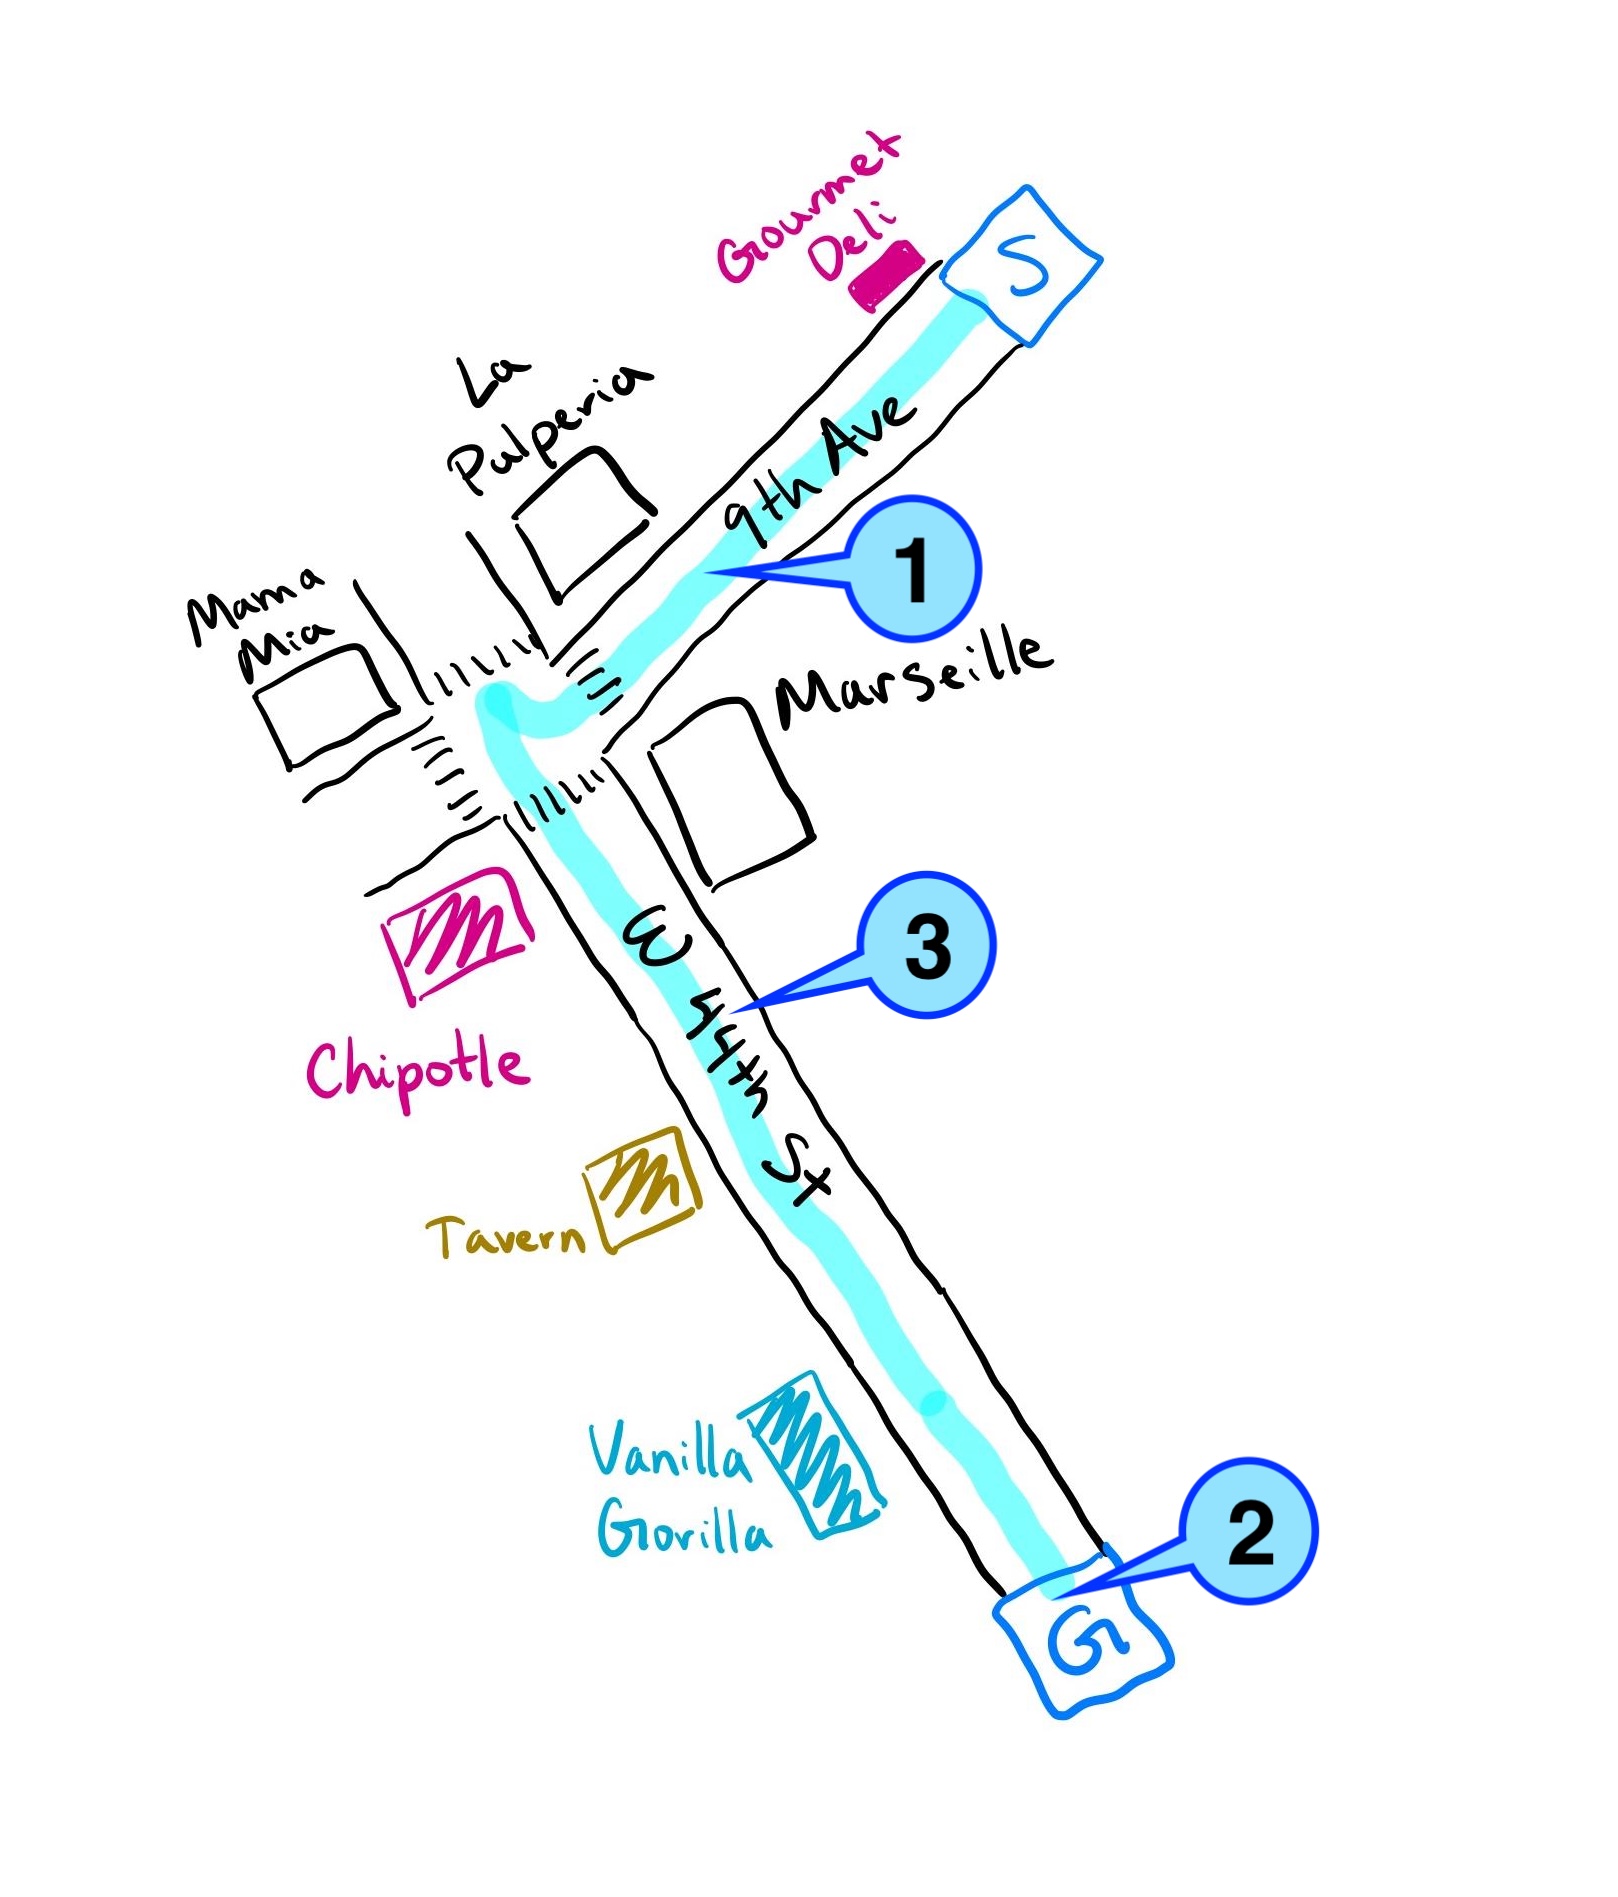 Gourmet
Deli
S
La
Pulperia
9th Ave
1
Mama
Mia
Marseille
3
Chipotle
Tavern
Vanilla
Gorilla
2
G